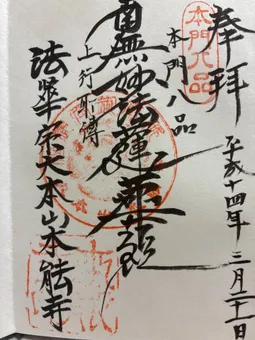 奉拝
平成十四年 三月二十一日
本門八品
本門八品
南無妙法蓮華経
上行所傳
法華宗大本山本能寺